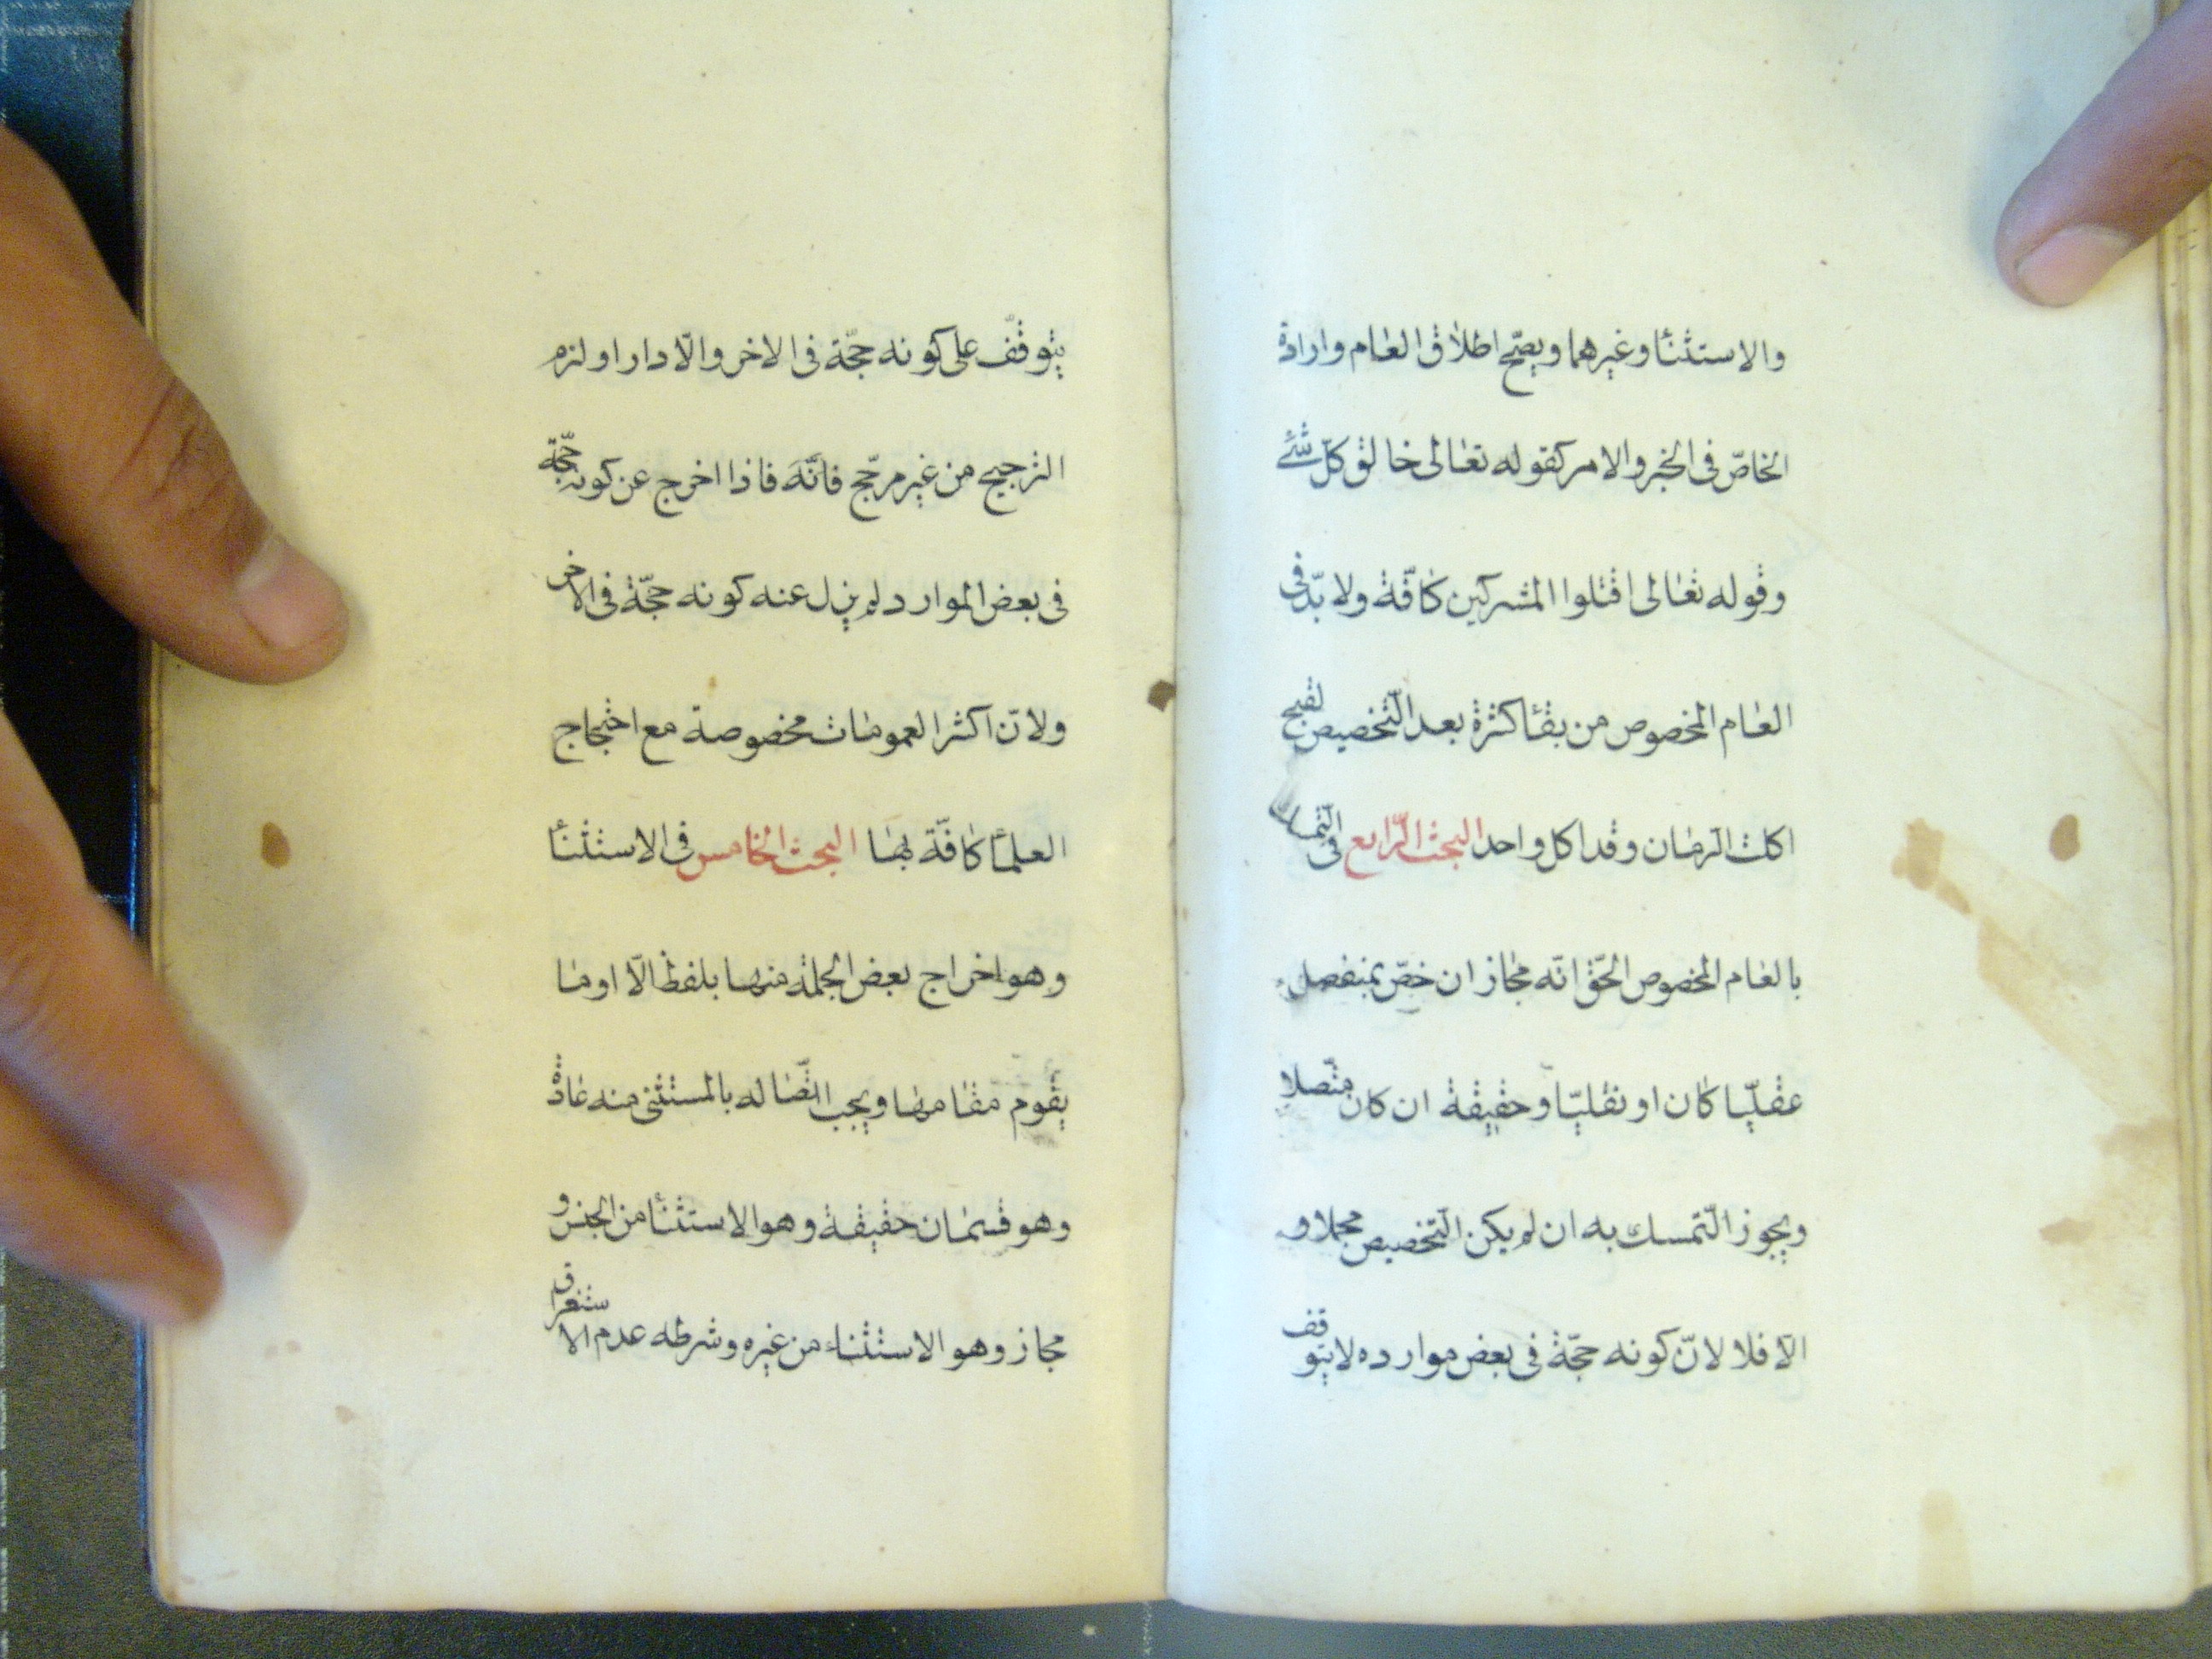 والاستثنٓا وغيرهما ويصحّ اطلاق العام وارادة
الخاصّ فى الخبر والامر كقوله تعالى خالق كلّ شئ
وقوله تعالى اقتلوا المشركين كافّة ولا بدّ فى
العام المخصوص من بقٓا كثرة بعد التّخصيص لقبح
اكلت الرّمان وقد اكل واحدا البحث الرّابع فى التّمسك
بالعام المخصوص الحقّ انّه مجاز ان خصّ بمنفصل
عقليّا كان او نقليّا وحقيقة ان كان متّصلا
ويجوز التّمسك به ان لم يكن التّخصيص مجملا و
الّا فلا لانّ كونه حجّة فى بعض موارده لا يتوقف
يتوقّف على كونه حجّة فى الاخر والّا دار او لزم
الترجيح من غير مرجّح فانّه فاذا اخرج عن كونه حجّة
فى بعض الموارد لم يزل عنه كونه حجّة فى الاخر
ولانّ اكثر العمومات مخصوصة مع احتجاج
العلمٓا كافّة بها البحث الخامس فى الاستثنٓا
وهو اخراج بعض الجملة منها بلفظ الّا او ما
يقوم مقامها ويجب اتّصاله بالمستثنى منه عادة
وهو قسمان حقيقة وهو الاستثنٓا من الجنس و
مجاز وهو الاستثناء من غيره وشرطه عدم الاستغراق